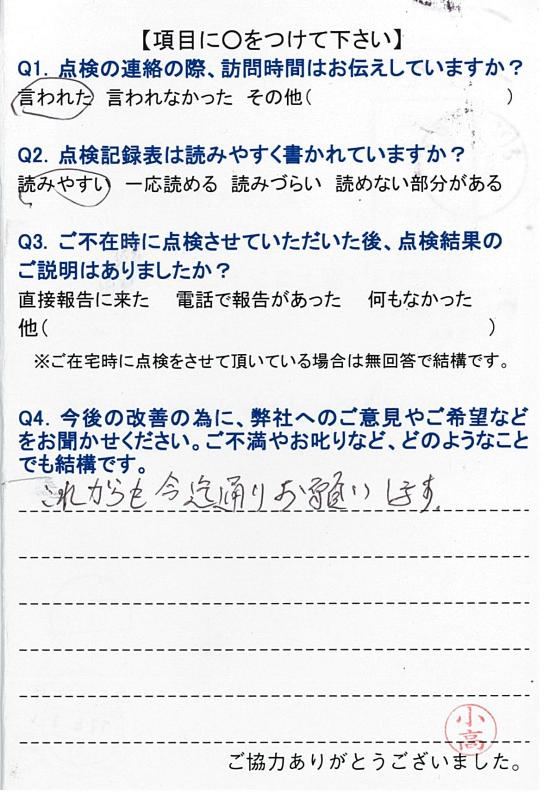 【項目に〇をつけて下さい】
Q1. 点検の連絡の際、訪問時間はお伝えしていますか？
言われた 言われなかった その他( )
Q2. 点検記録表は読みやすく書かれていますか？
読みやすい 一応読める 読みづらい 読めない部分がある
Q3. ご不在時に点検させていただいた後、点検結果の
ご説明はありましたか？
直接報告に来た 電話で報告があった 何もなかった
他( )
※ご在宅時に点検をさせて頂いている場合は無回答で結構です。
Q4. 今後の改善の為に、弊社へのご意見やご希望など
をお聞かせください。ご不満やお叱りなど、どのようなこと
でも結構です。
これからも今迄通りお願いします。
小高
ご協力ありがとうございました。